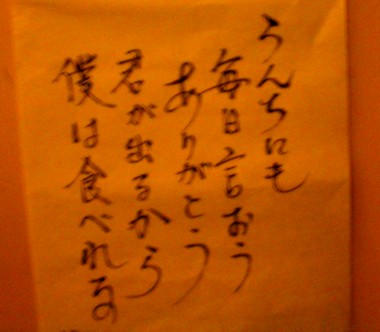 うんちにも
毎日言おう
ありがとう
君が出るから
僕は食べれるの